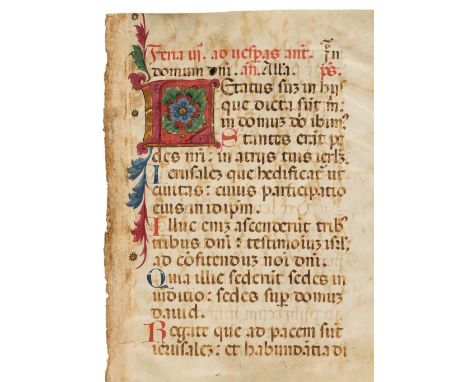 Feria iij. ad vesp̃as ant̃. Ĩn
domum dñi. añ. Alla. ps̃.
Letatus sũz in hijs
que dicta sũt m̃:
in domũz dõ ibim⁹
Stantes erãt pe
des nr̃i: in atrijs tuis ierlz̃.
Ierusalez que hedificat̃ ut
civitas: cuius participatio
eius in idip̃m.
Illuc enĩz ascenderũt trib⁹
tribus dñi: testimoniũz isrl̃.
ad confitenduz noĩ dñi.
Quia illic sederũt sedes in
iuditio: sedes sup̃ domũz
david.
Rogate que ad pacem sũt
ierusalez: et habundãtia di